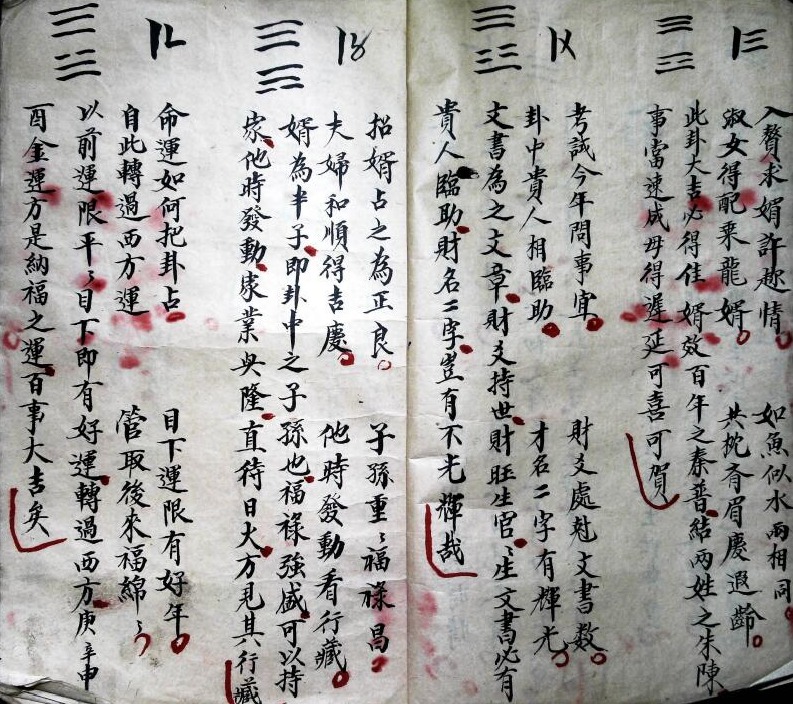 入贅求婚許趂情 如魚似水兩相同
淑女得配乘龍婿 共枕齊眉慶遐齡
此卦大吉必得佳婿效百年之秦晉結兩姓之朱陳
事當速成毋得遲延可喜可賀
考試今年問事宜 財爻處尅文書数
卦中貴人相臨助 才名二字有輝光
文書為之文章財爻持世財旺生官官生文書必有
貴人臨助財名二字豈有不光輝哉
招婿占之為正良 子孫重重福祿昌
夫婦和順得吉慶 他時發動看行藏
婿為半子即卦中之子孫也福祿強盛可以持
家他時發動家業興隆直待日大方見其行藏
命運如何把卦占 目下運限有好年
自此轉過西方運 管取後來福綿綿
以前運限平平目下即有好運轉過西方庚辛申
酉金運方是納福之運百事大吉矣